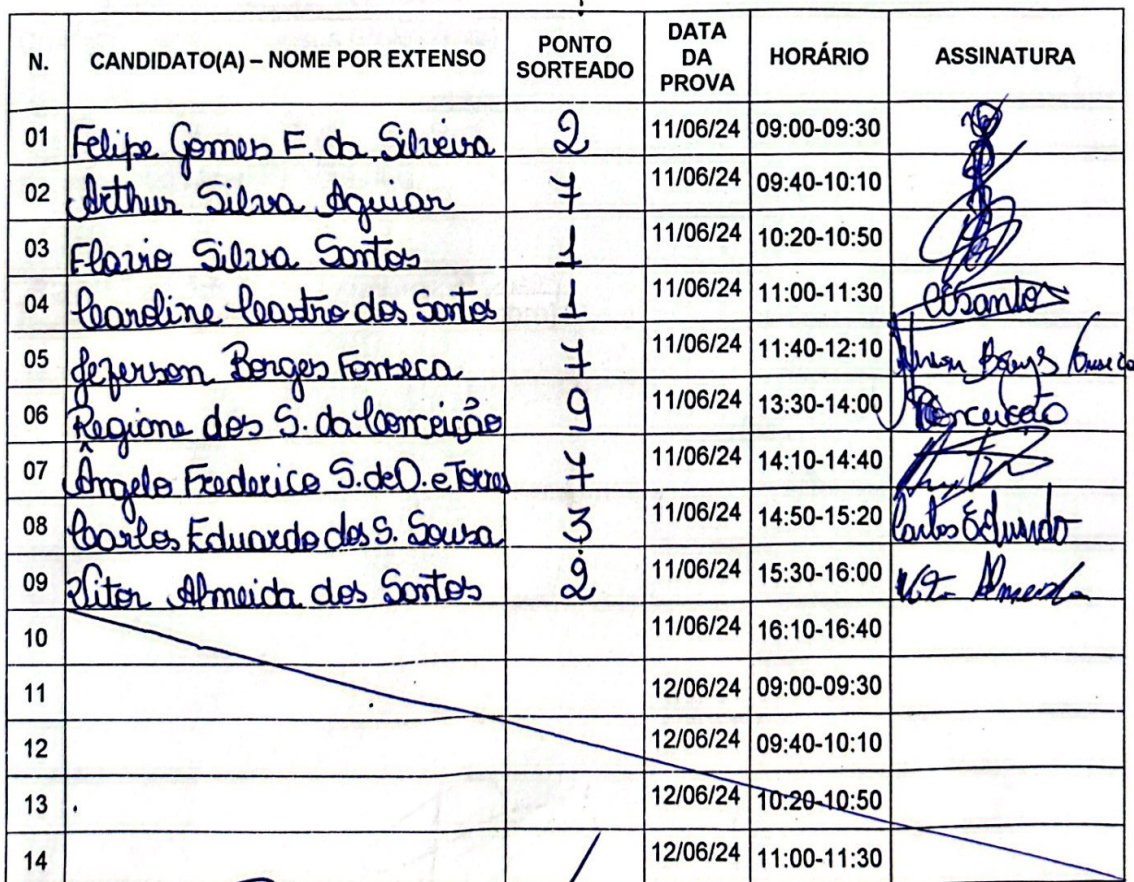 N. CANDIDATO(A) – NOME POR EXTENSO PONTO SORTEADO DATA DA PROVA HORÁRIO ASSINATURA
01 Felipe Gomes F. da Silveira 2 11/06/24 09:00-09:30
02 Arthur Silva Aguiar 7 11/06/24 09:40-10:10
03 Flavio Silva Santos 1 11/06/24 10:20-10:50
04 Caroline Castro dos Santos 1 11/06/24 11:00-11:30 CCSantos
05 Jeferson Borges Fonseca 7 11/06/24 11:40-12:10
06 Regiane dos S. da Conceição 9 11/06/24 13:30-14:00
07 Ângelo Frederico S. de O. e Torres 7 11/06/24 14:10-14:40
08 Carlos Eduardo dos S. Sousa 3 11/06/24 14:50-15:20 Carlos Eduardo
09 Vitor Almeida dos Santos 2 11/06/24 15:30-16:00 Almeida
10 11/06/24 16:10-16:40
11 12/06/24 09:00-09:30
12 12/06/24 09:40-10:10
13 12/06/24 10:20-10:50
14 12/06/24 11:00-11:30